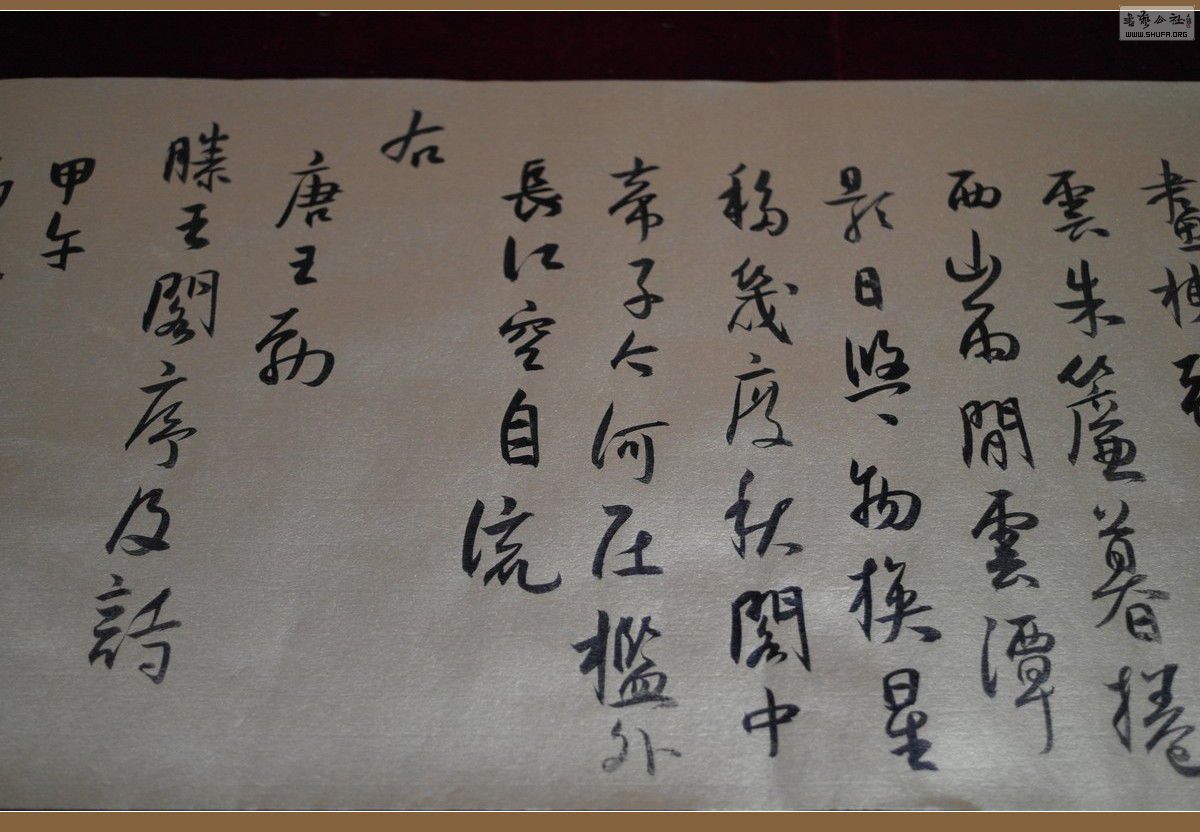 畫棟
雲朱簾暮捲
西山雨閒雲潭
影日悠、物換星
移幾度秋閣中
帝子今何在檻外
長江空自流
右
唐王勃
滕王閣序及詩
甲午
WWW.SHUFA.ORG